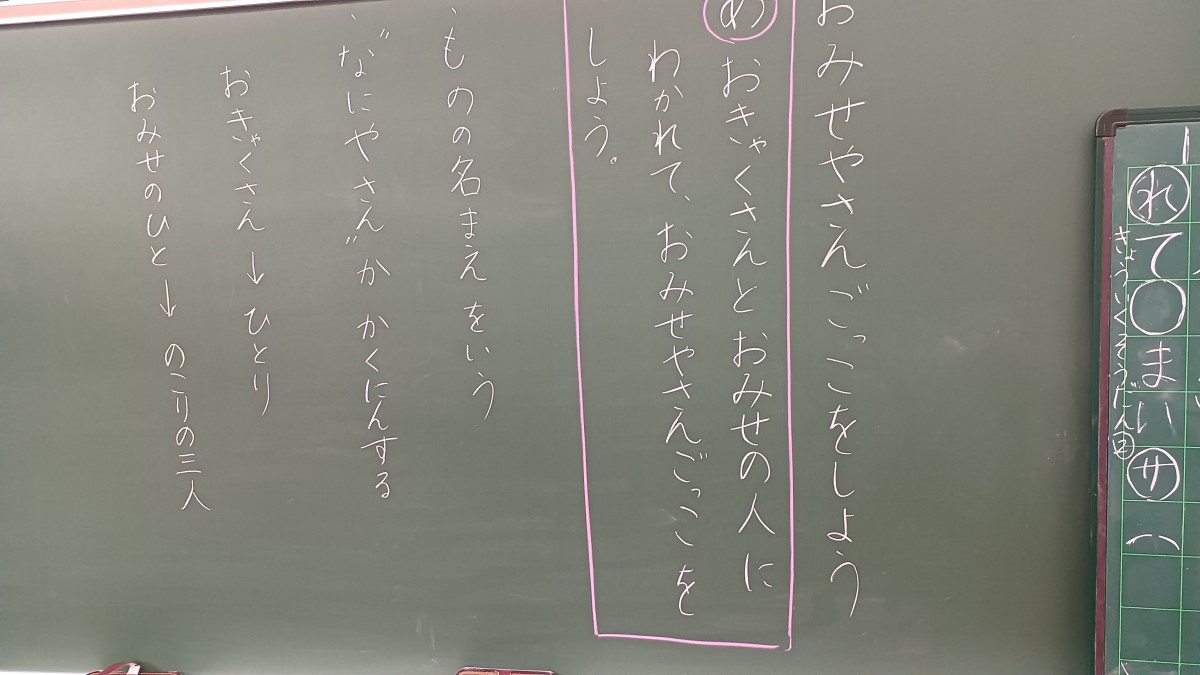 れて〇まいサ
きょういくそうだん②
おみせやさんごっこをしよう
め おきゃくさんとおみせの人に
わかれて、おみせやさんごっこを
しよう。
・ものの名まえをいう
・〝なにやさん〟か かくにんする
おきゃくさん→ひとり
おみせのひと→のこりの三人